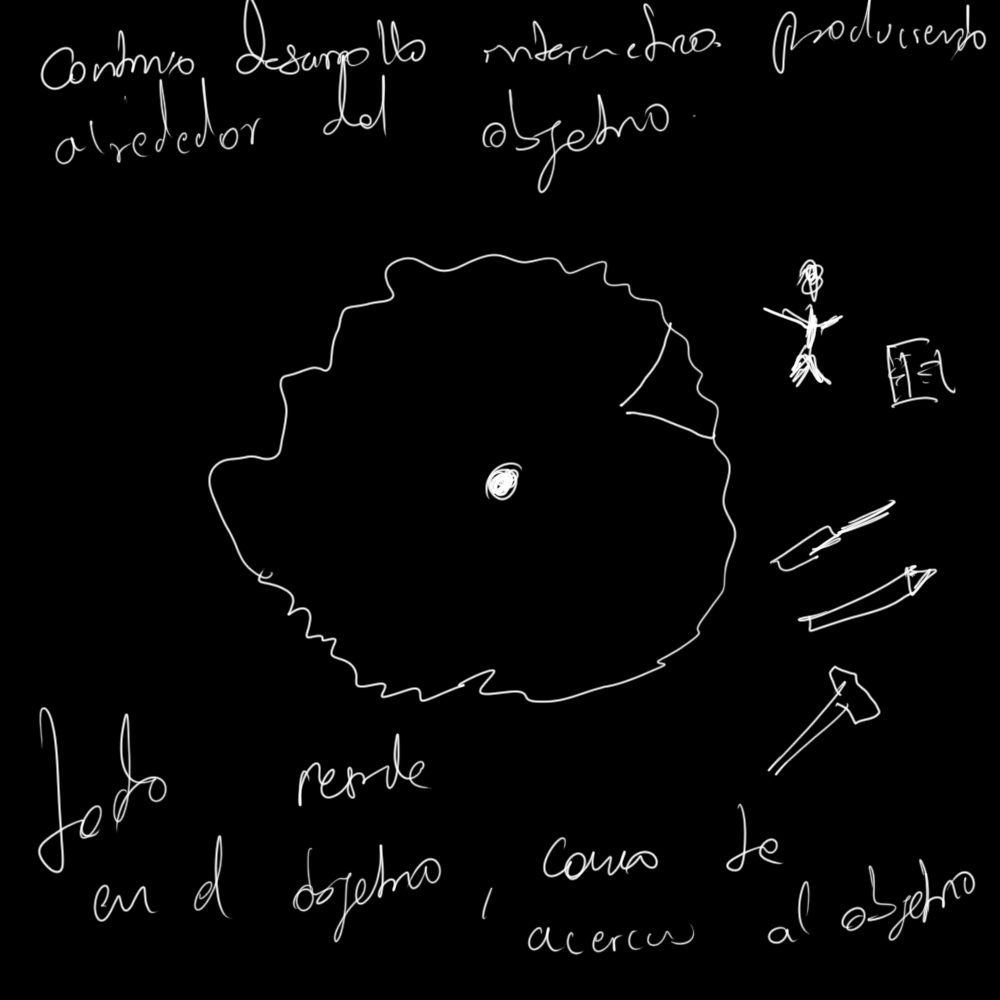 Continuo desarrollo interactivo produciendo
alrededor del objetivo.
Todo reside
en el objetivo, como te
acercas al objetivo